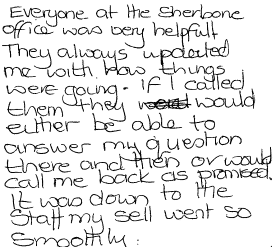 Everyone at the Sherbone
office was very helpfull
They always updated
me with how things
were going. if I called
them they would
either be able to
answer my question
there and then or would
call me back as promised.
It was down to the
staff my sell went so
smoothly.